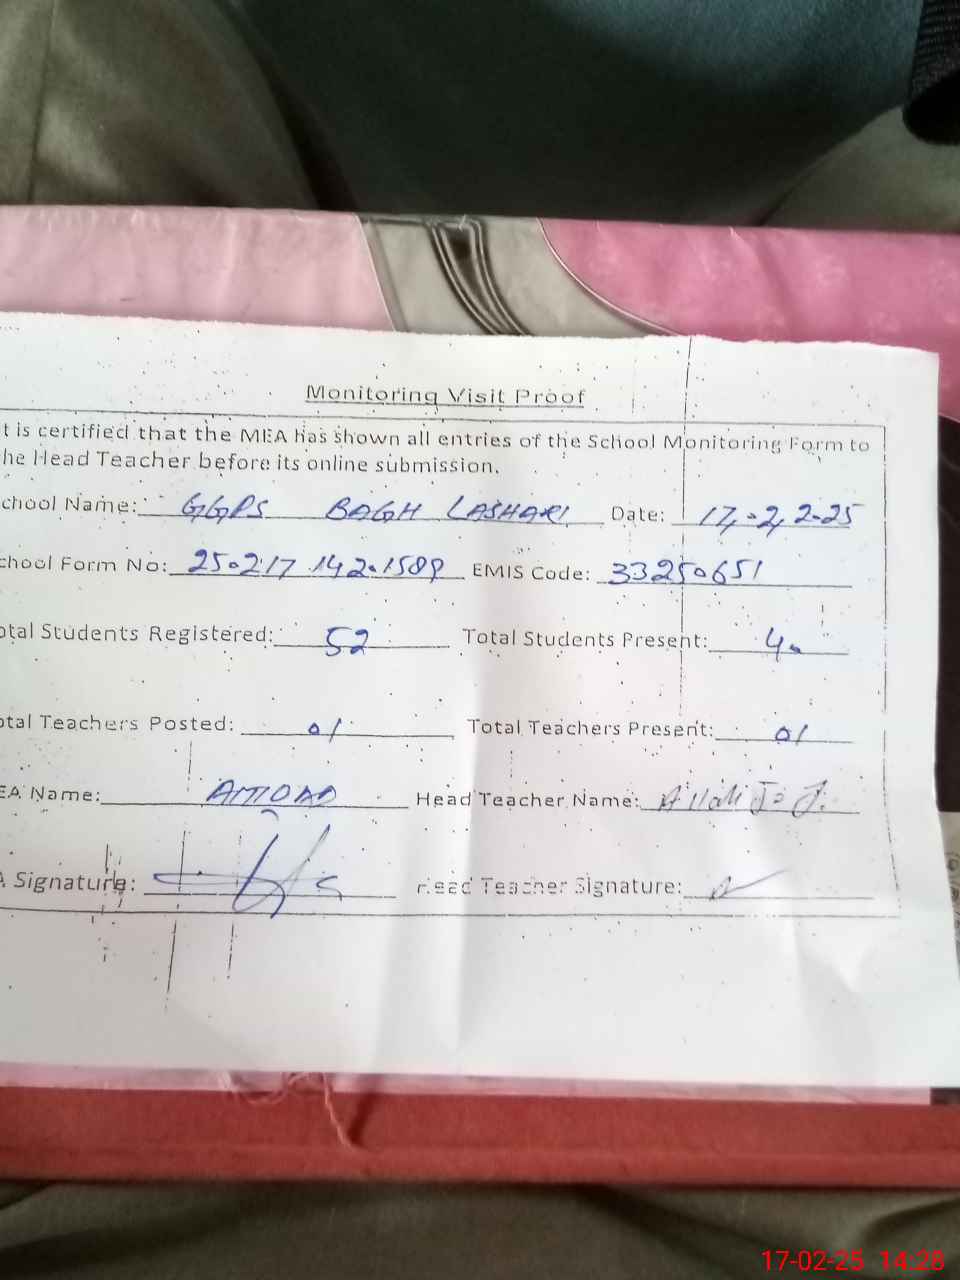 Monitoring Visit Proof
t is certified that the MEA has shown all entries of the School Monitoring Form to
he Head Teacher before its online submission.
chool Name: GGPS BAGH LASHARI Date: 17-2-2025
chool Form No: 250217 14201589 EMIS Code: 33250651
otal Students Registered: 52 Total Students Present: 40
otal Teachers Posted: 01 Total Teachers Present: 01
EA Name: Head Teacher Name:
A Signature: Head Teacher Signature:
17-02-25 14:28